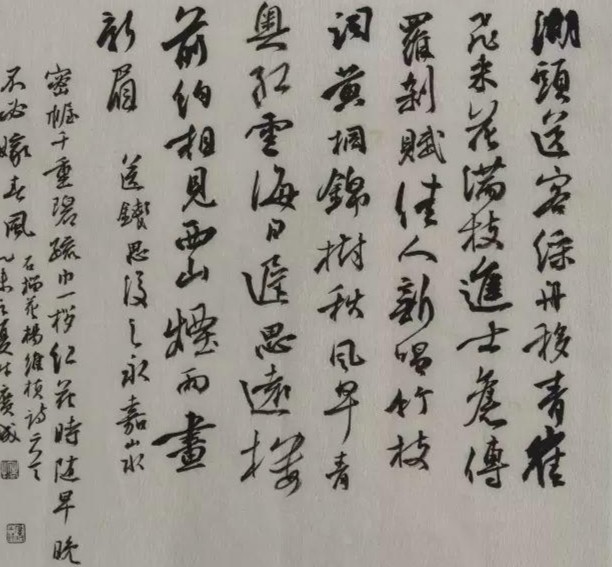 湖頭送客綵舟移青雀
飛来花滿枝進士舊傳
羅刹賦佳人新唱竹枝
詞黄柑錦樹秋風早青
奥紅雲海日遲思遠樓
前約相見西山煙雨畫
新眉 送錢思復之永嘉山水
密幄千重碧疏巾一拶红花時隨早晚
不必嫁春風 石榴花楊維楨詩 乙未之夏